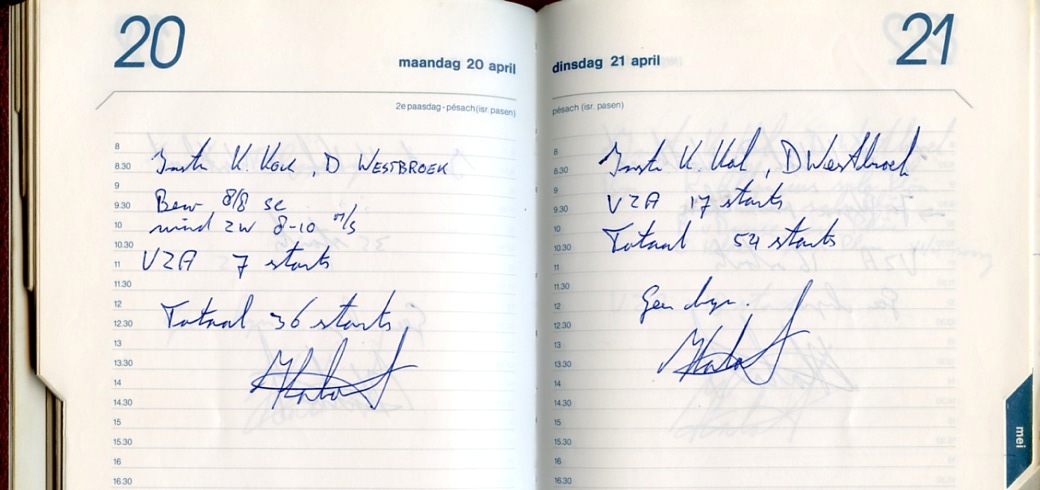 20
maandag 20 april
2e paasdag - pésach (isr. pasen)
8
8.30
9
9.30
10
10.30
11
11.30
12
12.30
13
13.30
14
14.30
15
15.30
16
16.30
Instr K. Kok, D WESTBROEK
Bew 8/8 sc
wind ZW 8-10 m/s
VZA 7 starts
Totaal 36 starts
21
dinsdag 21 april
pésach (isr. pasen)
8
8.30
9
9.30
10
10.30
11
11.30
12
12.30
13
13.30
14
14.30
15
15.30
16
16.30
Instr K. Kok, D Westbroek
VZA 17 starts
Totaal 54 starts
Geen
mei